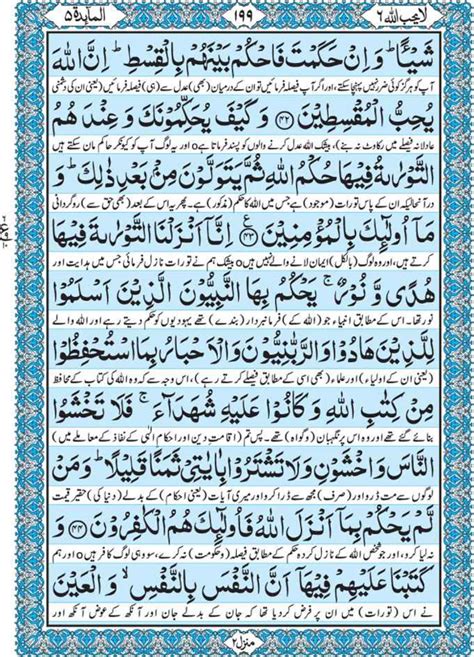 لا یحب اللہ ٦ ١٩٩ المآىِٕدة ٥
شَيْـًٔا ؕ وَاِنْ حَكَمْتَ فَاحْكُمْ بَيْنَهُمْ بِالْقِسْطِ ؕ اِنَّ اللّٰهَ
آپ کو ہرگز کوئی ضرر نہیں پہنچا سکتے، اور اگر آپ فیصلہ فرمائیں تو ان کے درمیان (بھی) عدل سے (ہی) فیصلہ فرمائیں (یعنی ان کی دشمنی
يُحِبُّ الْمُقْسِطِيْنَ ﴿۴۲﴾ وَ كَيْفَ يُحَكِّمُوْنَكَ وَ عِنْدَهُمُ
عادلانہ فیصلے میں رکاوٹ نہ بنے)، بیشک اللہ عدل کرنے والوں کو پسند فرماتا ہے o اور یہ لوگ آپ کو کیونکر حاکم مان سکتے ہیں
التَّوْرٰىةُ فِيْهَا حُكْمُ اللّٰهِ ثُمَّ يَتَوَلَّوْنَ مِنْۢ بَعْدِ ذٰلِكَ ؕ وَ
درآنحالیکہ ان کے پاس تورات (موجود) ہے جس میں اللہ کا حکم (مذکور) ہے، پھر یہ اس کے بعد (بھی حق سے) روگردانی
مَاۤ اُولٰٓئِكَ بِالْمُؤْمِنِيْنَ ﴿۴۳﴾ اِنَّاۤ اَنْزَلْنَا التَّوْرٰىةَ فِيْهَا
کرتے ہیں، اور وہ لوگ (بالکل) ایمان لانے والے نہیں ہیں o بیشک ہم نے تورات نازل فرمائی جس میں ہدایت اور
هُدًى وَّ نُوْرٌ ۚ يَحْكُمُ بِهَا النَّبِيُّوْنَ الَّذِيْنَ اَسْلَمُوْا
نور تھا۔ اس کے مطابق انبیاء جو (اللہ کے) فرمانبردار (بندے) تھے یہودیوں کو حکم دیتے رہے اور اللہ والے
لِلَّذِيْنَ هَادُوْا وَ الرَّبّٰنِيُّوْنَ وَ الْاَحْبَارُ بِمَا اسْتُحْفِظُوْا
(یعنی ان کے اولیاء) اور علماء (بھی اسی کے مطابق فیصلے کرتے رہے)، اس وجہ سے کہ وہ اللہ کی کتاب کے محافظ
مِنْ كِتٰبِ اللّٰهِ وَ كَانُوْا عَلَيْهِ شُهَدَآءَ ۚ فَلَا تَخْشَوُا
بنائے گئے تھے اور وہ اس پر نگہبان (و گواہ) تھے۔ پس تم (اقامتِ دین اور احکام الٰہی کے نفاذ کے معاملے میں)
النَّاسَ وَ اخْشَوْنِ وَ لَا تَشْتَرُوْا بِاٰيٰتِيْ ثَمَنًا قَلِيْلًا ؕ وَ مَنْ
لوگوں سے مت ڈرو اور (صرف) مجھ سے ڈرا کرو اور میری آیات (یعنی احکام) کے بدلے (دنیا کی) حقیر قیمت
لَّمْ يَحْكُمْ بِمَاۤ اَنْزَلَ اللّٰهُ فَاُولٰٓئِكَ هُمُ الْكٰفِرُوْنَ ﴿۴۴﴾ وَ
نہ لیا کرو، اور جو شخص اللہ کے نازل کردہ حکم کے مطابق فیصلہ (و حکومت) نہ کرے، سو وہی لوگ کافر ہیں o اور
كَتَبْنَا عَلَيْهِمْ فِيْهَاۤ اَنَّ النَّفْسَ بِالنَّفْسِ ۙ وَ الْعَيْنَ
ہم نے اس (تورات) میں ان پر فرض کردیا تھا کہ جان کے بدلے جان اور آنکھ کے عوض آنکھ اور
منزل ٢